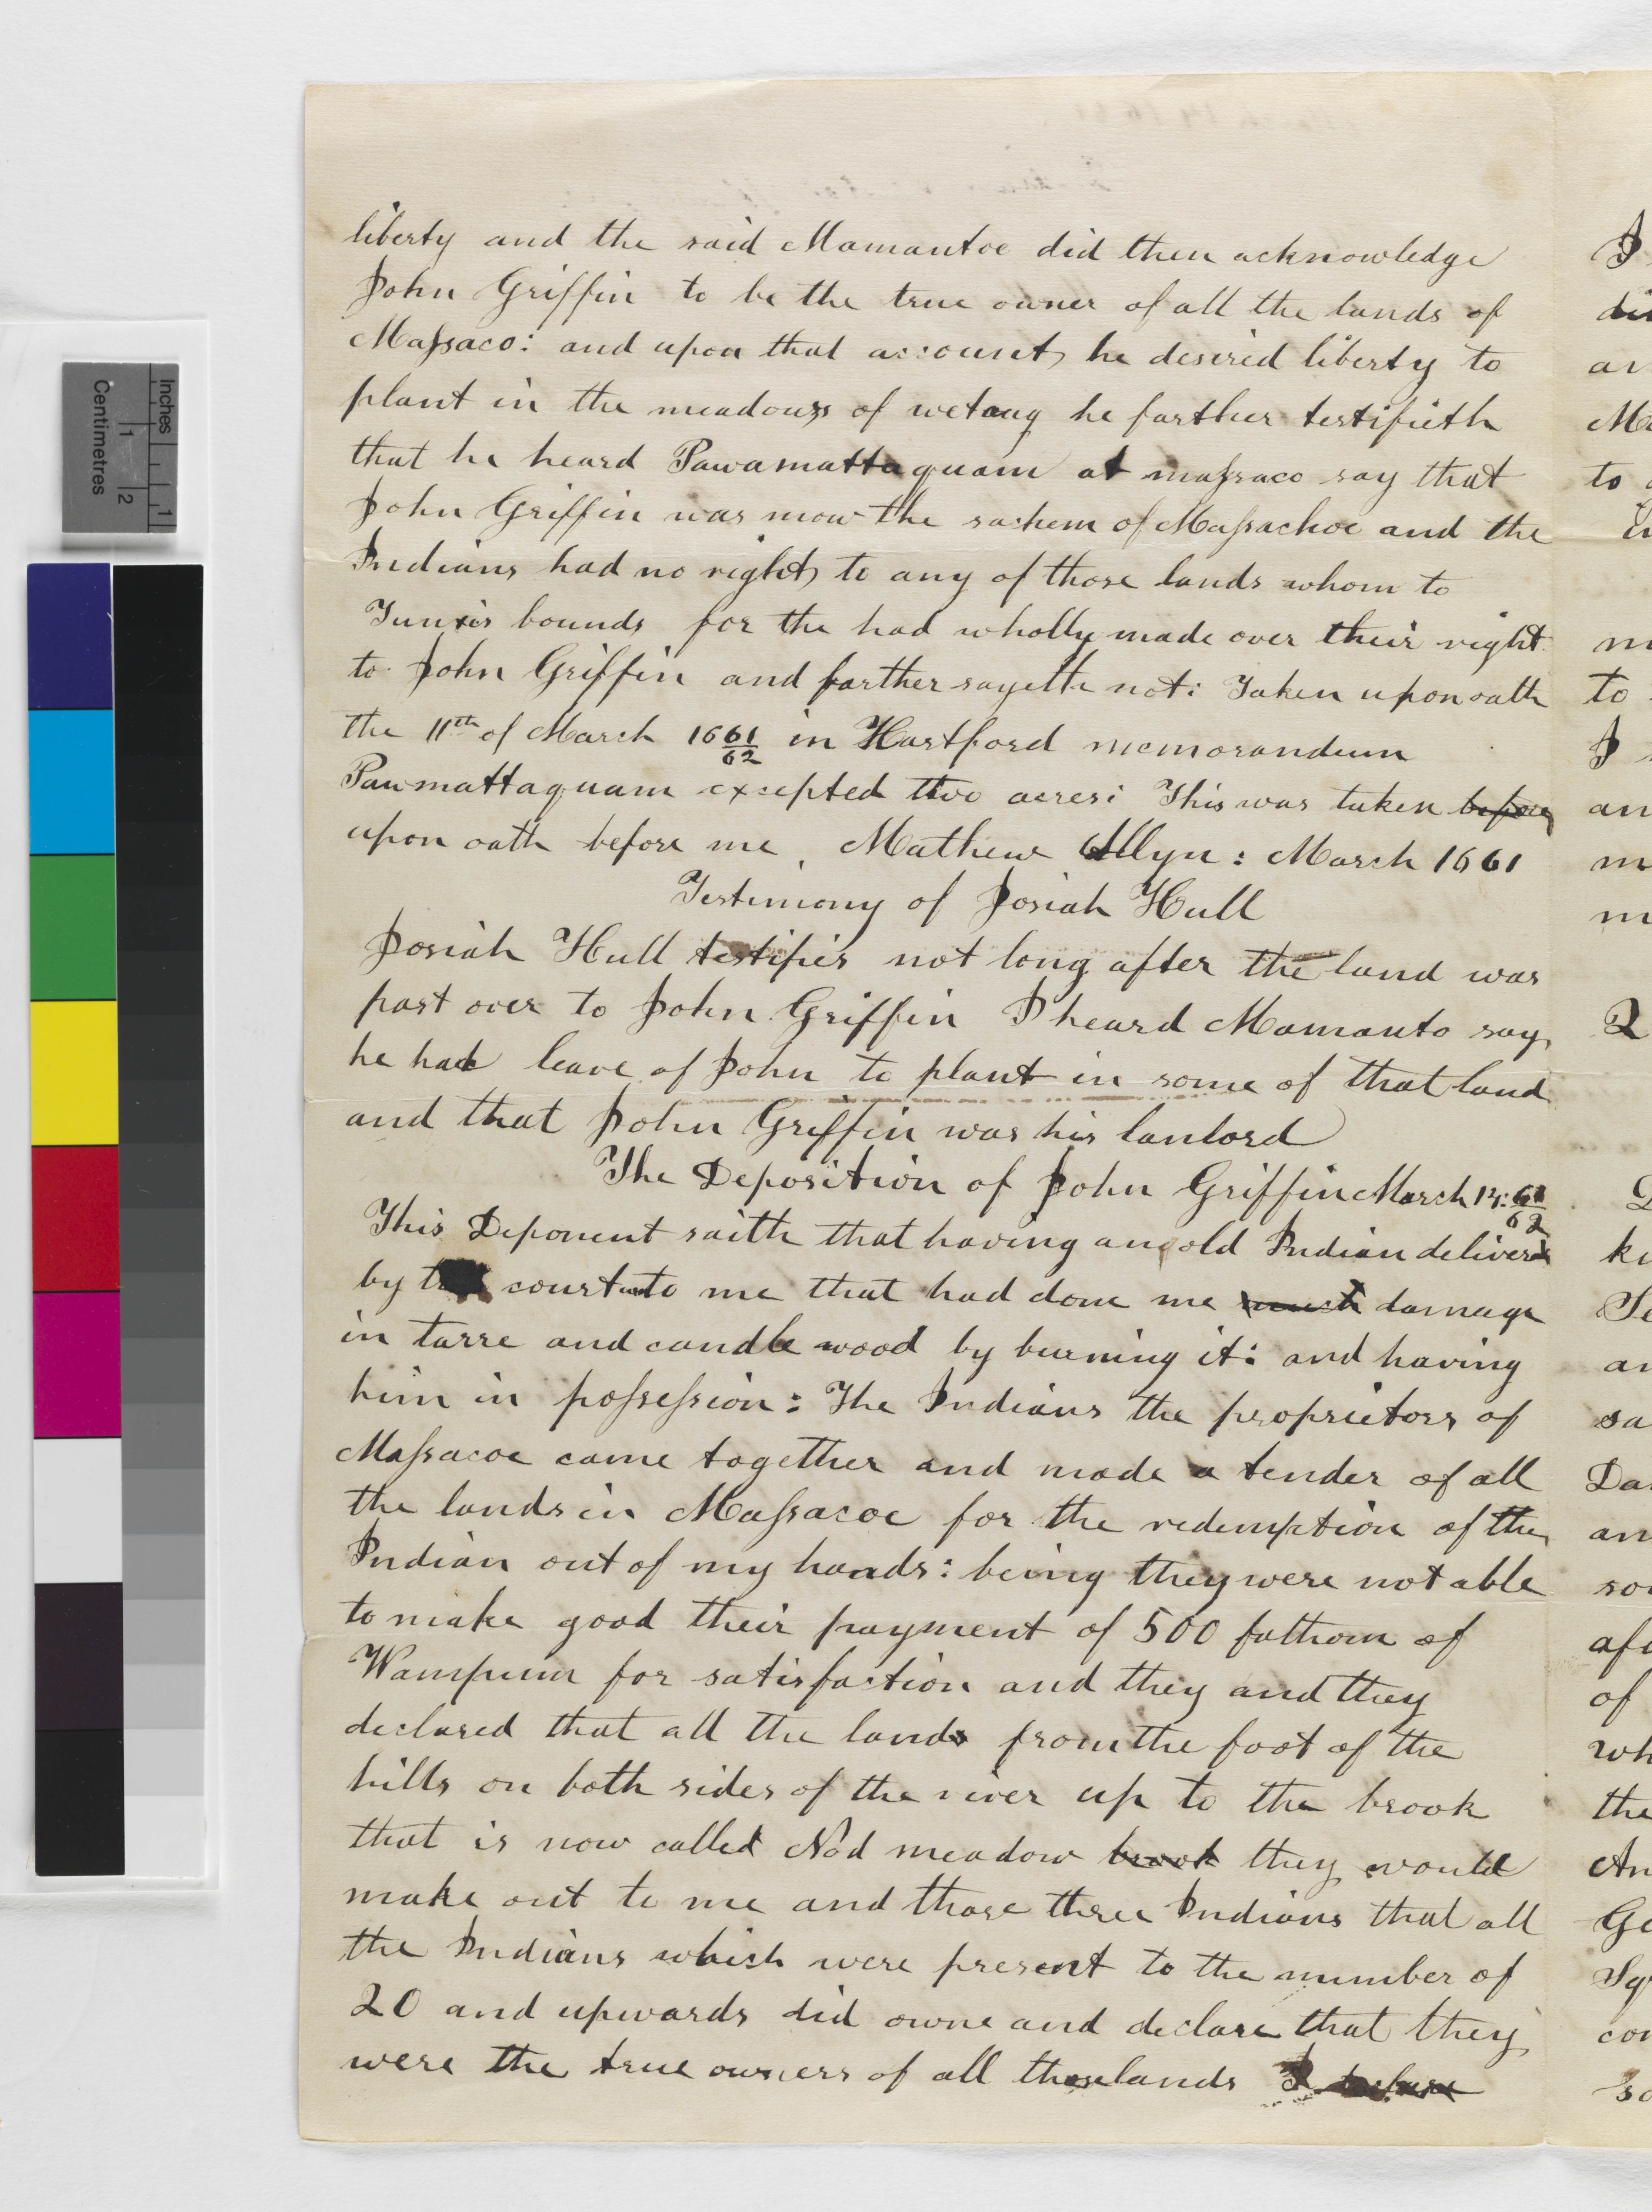 liberty and the said Mamantoe did then acknowledge
John Griffin to be the true owner of all the lands of
Maſsaco: and upon that account he desired liberty to
plant in the meadows of wetaug he farther testifieth
that he heard Pawamattaquam at maſsaco say that
John Griffin was mow the sachem of Maſsachoe and the
Indians had no right to any of those lands whom to
Tunxis bounds for the had wholly made over their right
to John Griffin and farther sayeth not: Taken upon oath
the 11th of March 1661/62 in Hartford memorandum
Pawmattaquam excepted two acres: This was taken before
upon oath before me, Mathew Allyn: March 1661
Testimony of Josiah Hull
Josiah Hull testifies not long after the land was
past over to John Griffin I heard Mamanto say
he had leave of John to plant in some of that land
and that John Griffin was his lanlord
The Deposition of John Griffin March 14: 61/62
This Deponent saith that having an old Indian deliverd
by the court unto me that had done me much damage
in tarre and candle wood by burning it: and having
him in poſseſsion: The Indians the proprietors of
Maſsacoe came together and made a tender of all
the lands in Maſsacoe for the redemption of the
Indian out of my hands: being they were not able
to make good their payment of 500 fathom of
Wampum for satisfaction and they and they
declared that all the lands from the foot of the
hills on both sides of the river up to the brook
that is now called Nod meadow brook they would
make out to me and those three Indians that all
the Indians which were present to the number of
20 and upwards did owne and declare that they
were the true owners of all those lands I
Inches
1
Centimetres
1 2